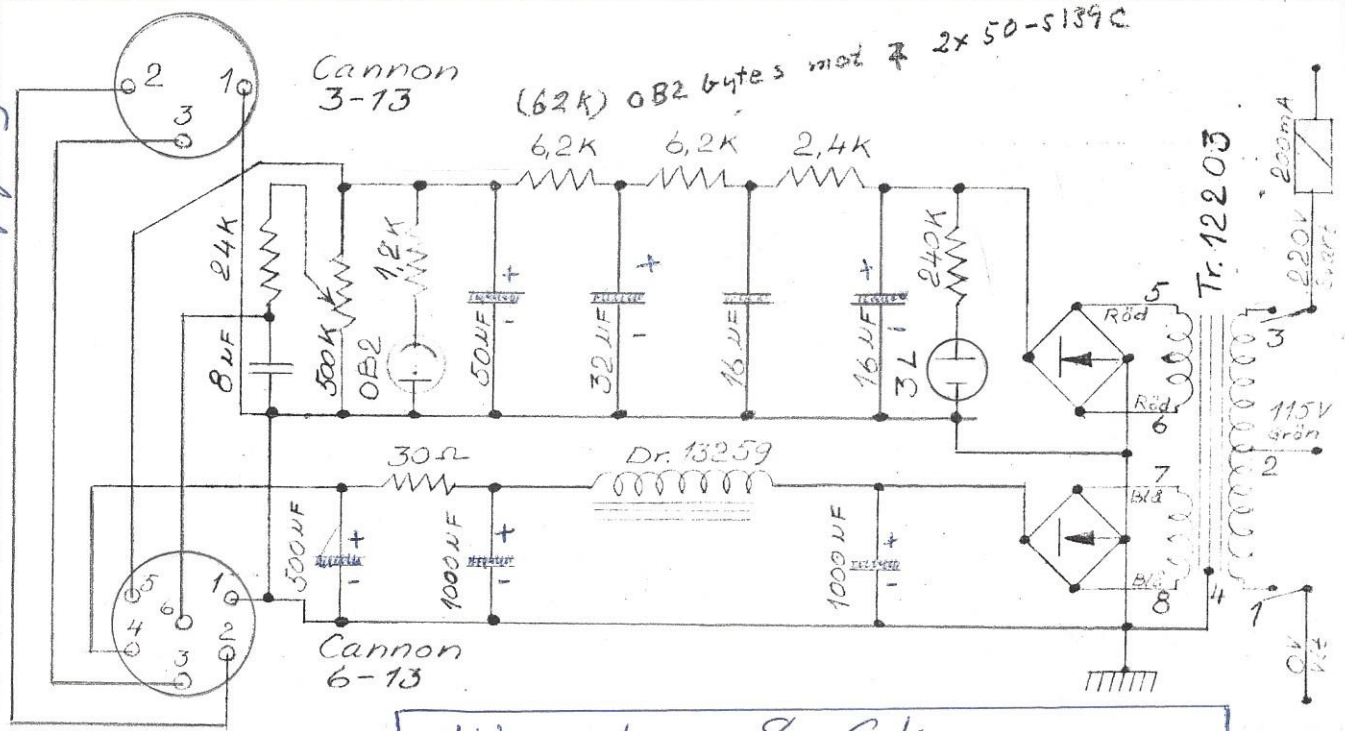 2 1
3
Cannon
3-13
(62K) OB2 bytes mot 2x 50-5139C
6,2K 6,2K 2,4K
24K
8µF
500K
1,2K
OB2
50µF
+
-
32µF
+
16µF
16µF
+
-
240K
3L
5
Röd
Röd
6
7
Blå
Blå
8
Tr. 12203
200mA
220V
Svart
3
115V
Grön
2
4
1
0V
Vit
30Ω
Dr. 13259
500µF
+
-
1000µF
+
-
1000µF
+
-
5 1
6
4 2
3
Cannon
6-13